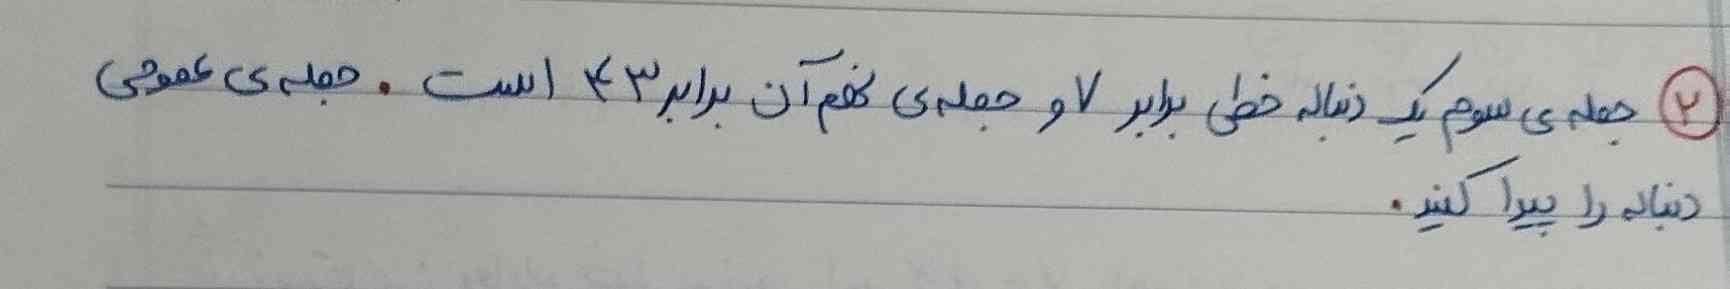 ۲ جمله ی سوم یک دنباله خطی برابر ۷ و جمله ی نهم آن برابر ۴۳ است . جمله ی عمومی
دنباله را پیدا کنید .